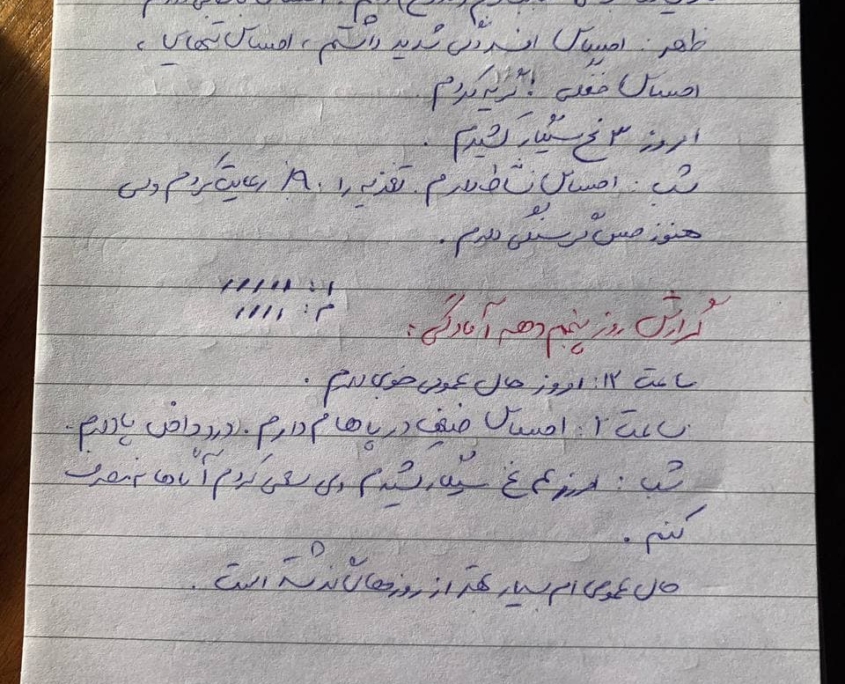 ظهر: احساس افسردگی شدید داشتم، احساس تنهایی،
احساس خفگی! گریه کردم.
امروز ۳ نخ سیگار کشیدم.
شب: احساس نشاط دارم. تغذیه را ۸۰٪ رعایت کردم ولی
هنوز حس گرسنگی دارم.
گزارش روز پنجم دهه آمادگی:
ساعت ۱۲: امروز حال عمومی خوبی دارم.
ساعت ۲: احساس ضعف در پاهام دارم. درد داخل پا دارم.
شب: امروز ۴ نخ سیگار کشیدم ولی سعی کردم آنها را نصف
کنم.
حال عمومی ام بسیار بهتر از روزهای گذشته است.